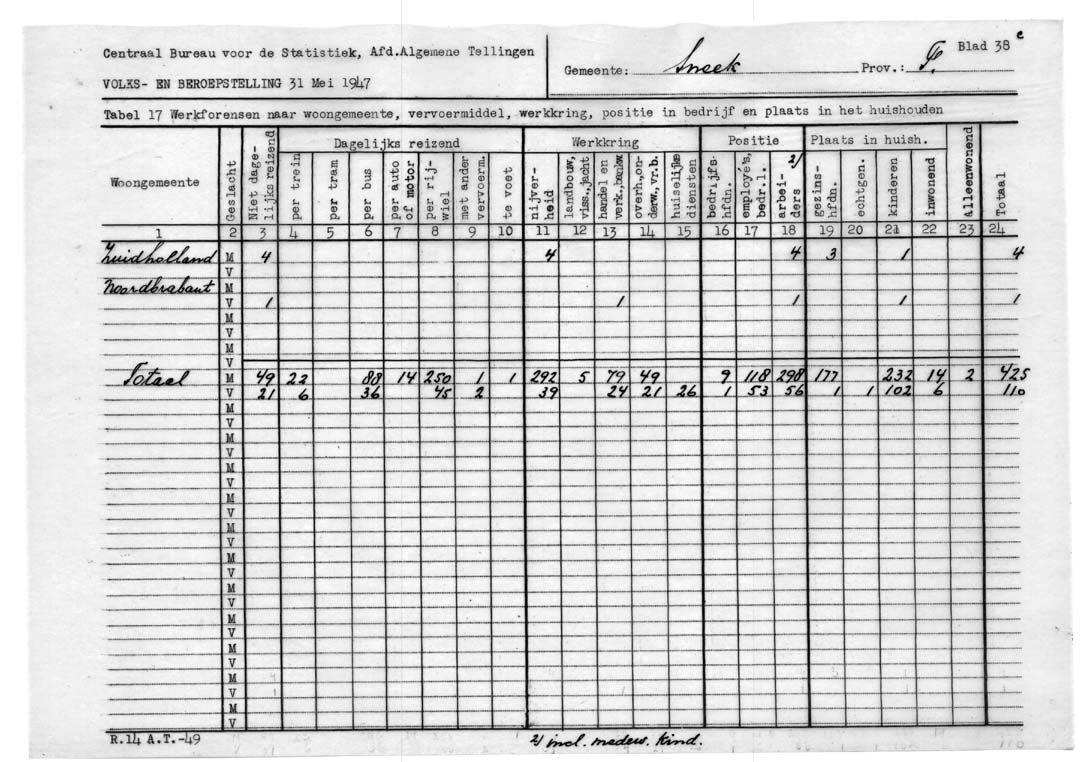 Centraal Bureau voor de Statistiek, Afd.Algemene Tellingen
VOLKS- EN BEROEPSTELLING 31 Mei 1947
Gemeente: Sneek Prov.: F. Blad 38 c
Tabel 17 Werkforensen naar woongemeente, vervoermiddel, werkkring, positie in bedrijf en plaats in het huishouden
Woongemeente Geslacht Niet dage-lijks reizend Dagelijks reizend Werkkring Positie Plaats in huish. Alleenwonend Totaal
per trein per tram per bus per auto of motor per rij-wiel met ander vervoerm. te voet nijver-heid landbouw, viss.,jacht handel en verk.,bankw. overh.,on-derw.,vr.b. huiselijke diensten bedrijfs-hfdn. employé's, bedr.l. arbei-ders 2/ gezins-hfdn. echtgen. kinderen inwonend
1 2 3 4 5 6 7 8 9 10 11 12 13 14 15 16 17 18 19 20 21 22 23 24
Zuidholland M 4 4 4 3 1 4
V
Noordbrabant M
V 1 1 1 1 1
M
V
M
V
Totaal M 49 22 88 14 250 1 1 292 5 79 49 9 118 298 177 232 14 2 425
V 21 6 36 45 2 39 24 21 26 1 53 56 1 1 102 6 110
M
V
M
V
M
V
M
V
M
V
M
V
M
V
M
V
M
V
M
V
M
V
R.14 A.T.-49
2/ incl. medew. kind.